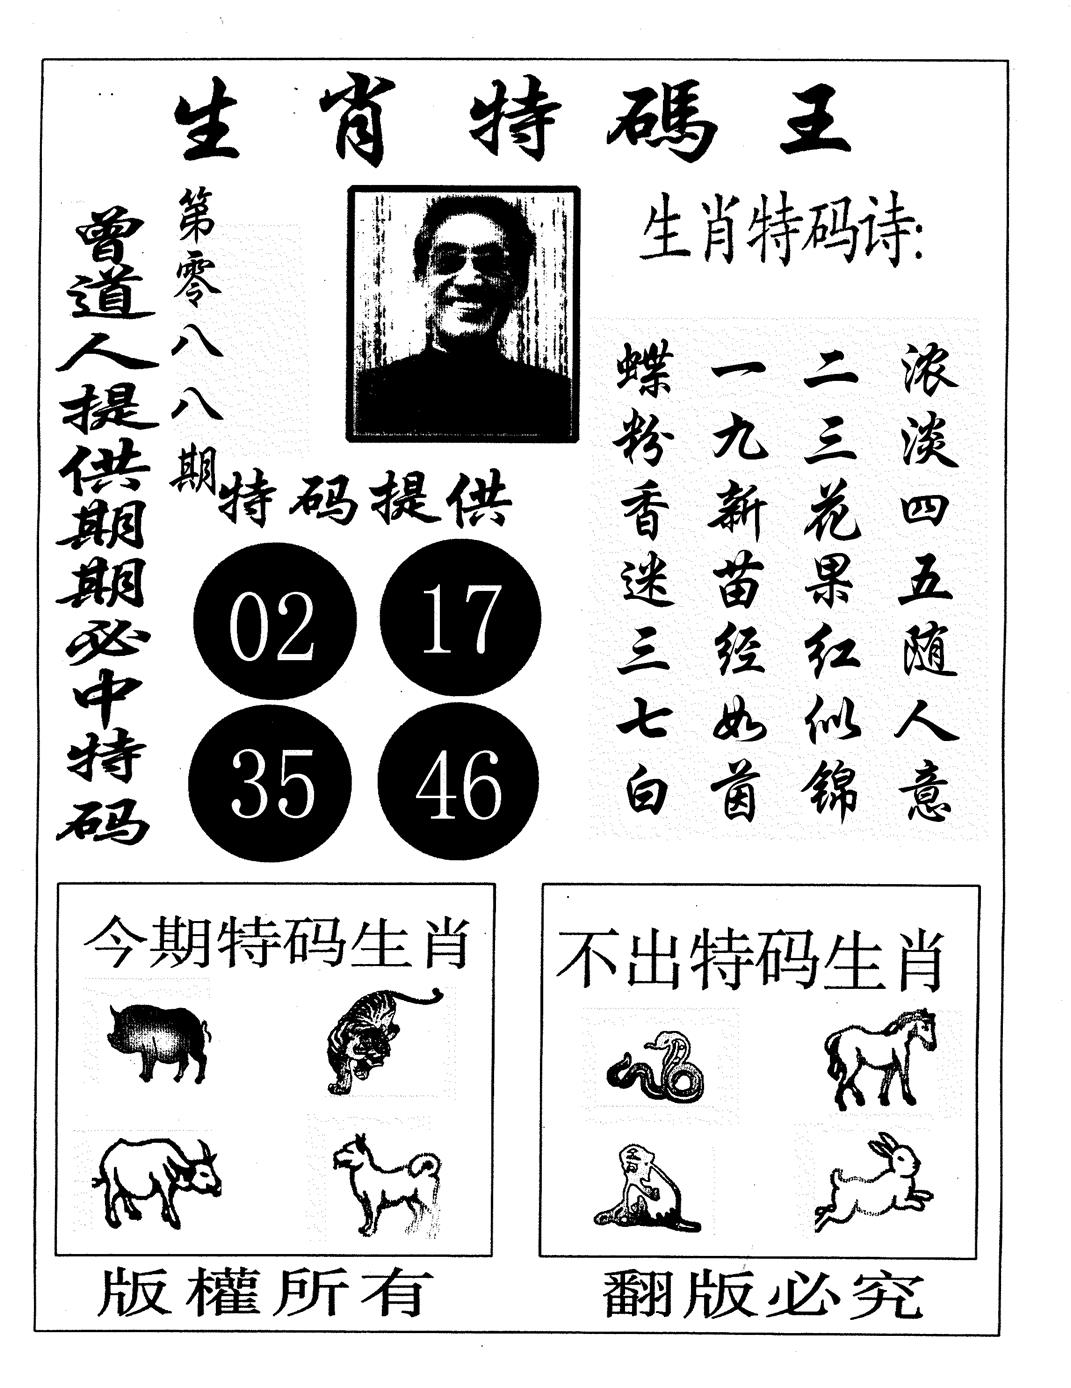 生肖特碼王
曾道人提供期期必中特码
第零八八期
生肖特码诗:
浓淡四五随人意
二三花果红似锦
一九新苗经如茵
蝶粉香迷三七白
特码提供
02 17
35 46
今期特码生肖
不出特码生肖
版權所有
翻版必究